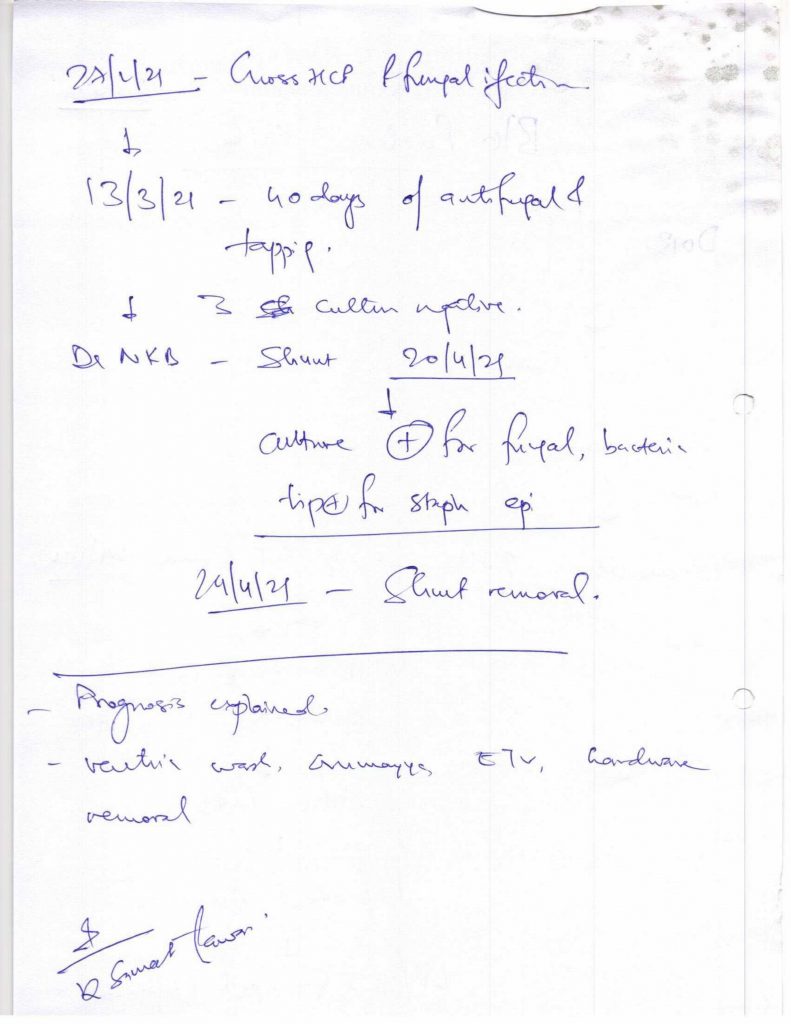 27/1/21 - Gross HCP & fungal ifection
↓
13/3/21 - 40 days of antifugal &
tappig.
↓ 3 cultur negative.
Dr NKB - Shunt 20/4/21
↓
culture ⊕ for fugal, bacteria
tip ⊕ for staph epi
24/4/21 - Shunt removal.
- Prognosis explained
- ventric wash, ETV, hardware
removal
Dr Sumit